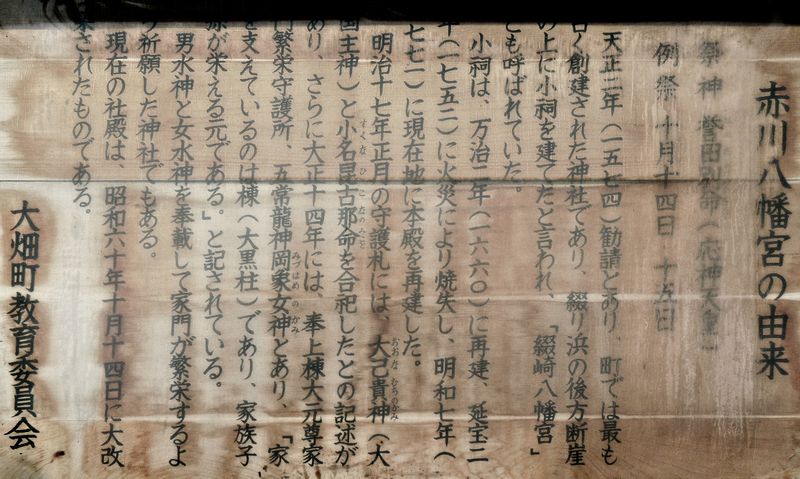 赤川八幡宮の由来
祭神 誉田別命(応神天皇)
例祭 十月十四日 十五日
天正二年(一五七四)勧請とあり、町では最も
古く創建された神社であり、綴り浜の後方断崖
の上に小祠を建てたと言われ、「綴崎八幡宮」
とも呼ばれていた。
小祠は、万治二年(一六六〇)に再建、延宝二
年(一七五二)に火災により焼失し、明和七年(
七七一)に現在地に本殿を再建した。
明治十七年正月の守護札には、大己貴神(大
国主神)と小名昆古那命を合祀したとの記述が
あり、さらに大正十四年には、奉上棟大元尊家
門繁栄守護所、五常龍神岡象女神とあり、「家
を支えているのは棟(大黒柱)であり、家族子
孫が栄える元である。」と記されている。
男水神と女水神を奉載して家門が繁栄するよ
う祈願した神社でもある。
現在の社殿は、昭和六十年十月十四日に大改
築されたものである。
大畑町教育委員会